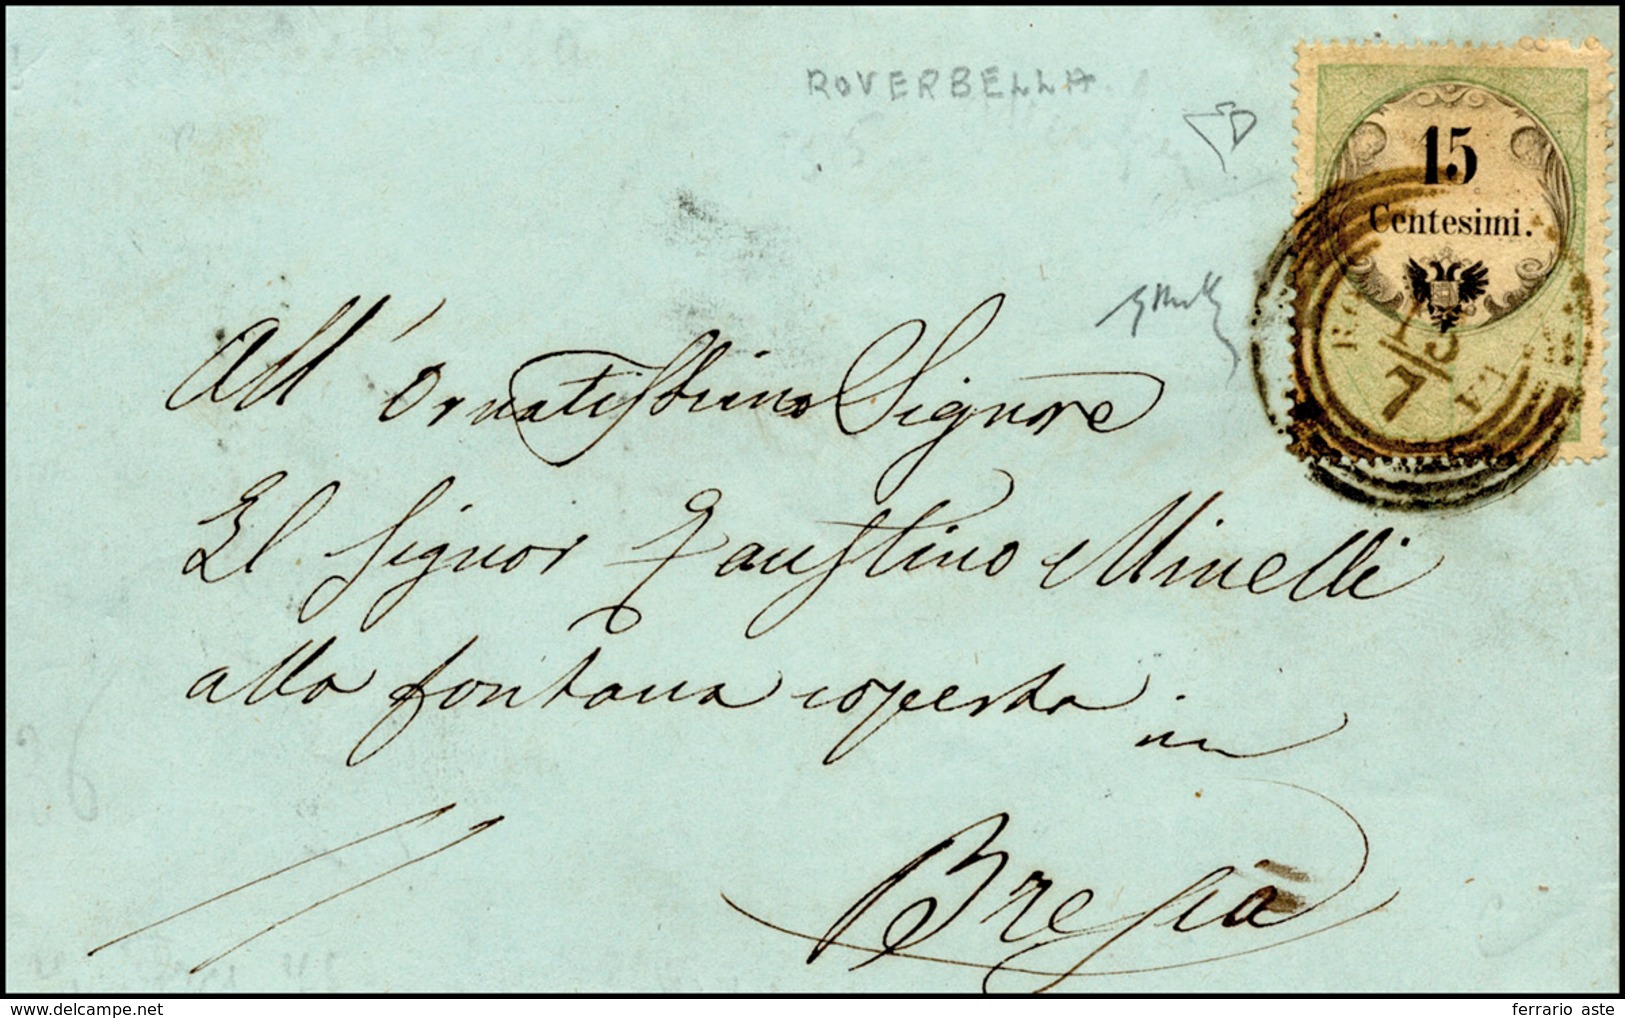 ROVERBELLA
15
Centesimi.
7/5
All' Ornatissimo Signore
El Signor Faustino Minelli
alla fontana coperta
in
Brescia
ferrario aste